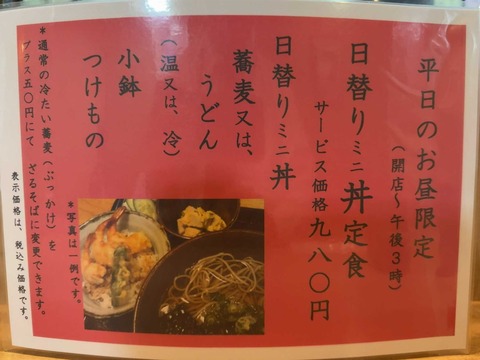 平日のお昼限定
(開店～午後3時)
日替りミニ丼定食
サービス価格九八〇円
日替りミニ丼
蕎麦又は、
うどん
(温又は、冷)
小鉢
つけもの
*写真は一例です。
*通常の冷たい蕎麦(ぶっかけ)を
プラス五〇円にて ざるそばに変更できます。
表示価格は、税込み価格です。